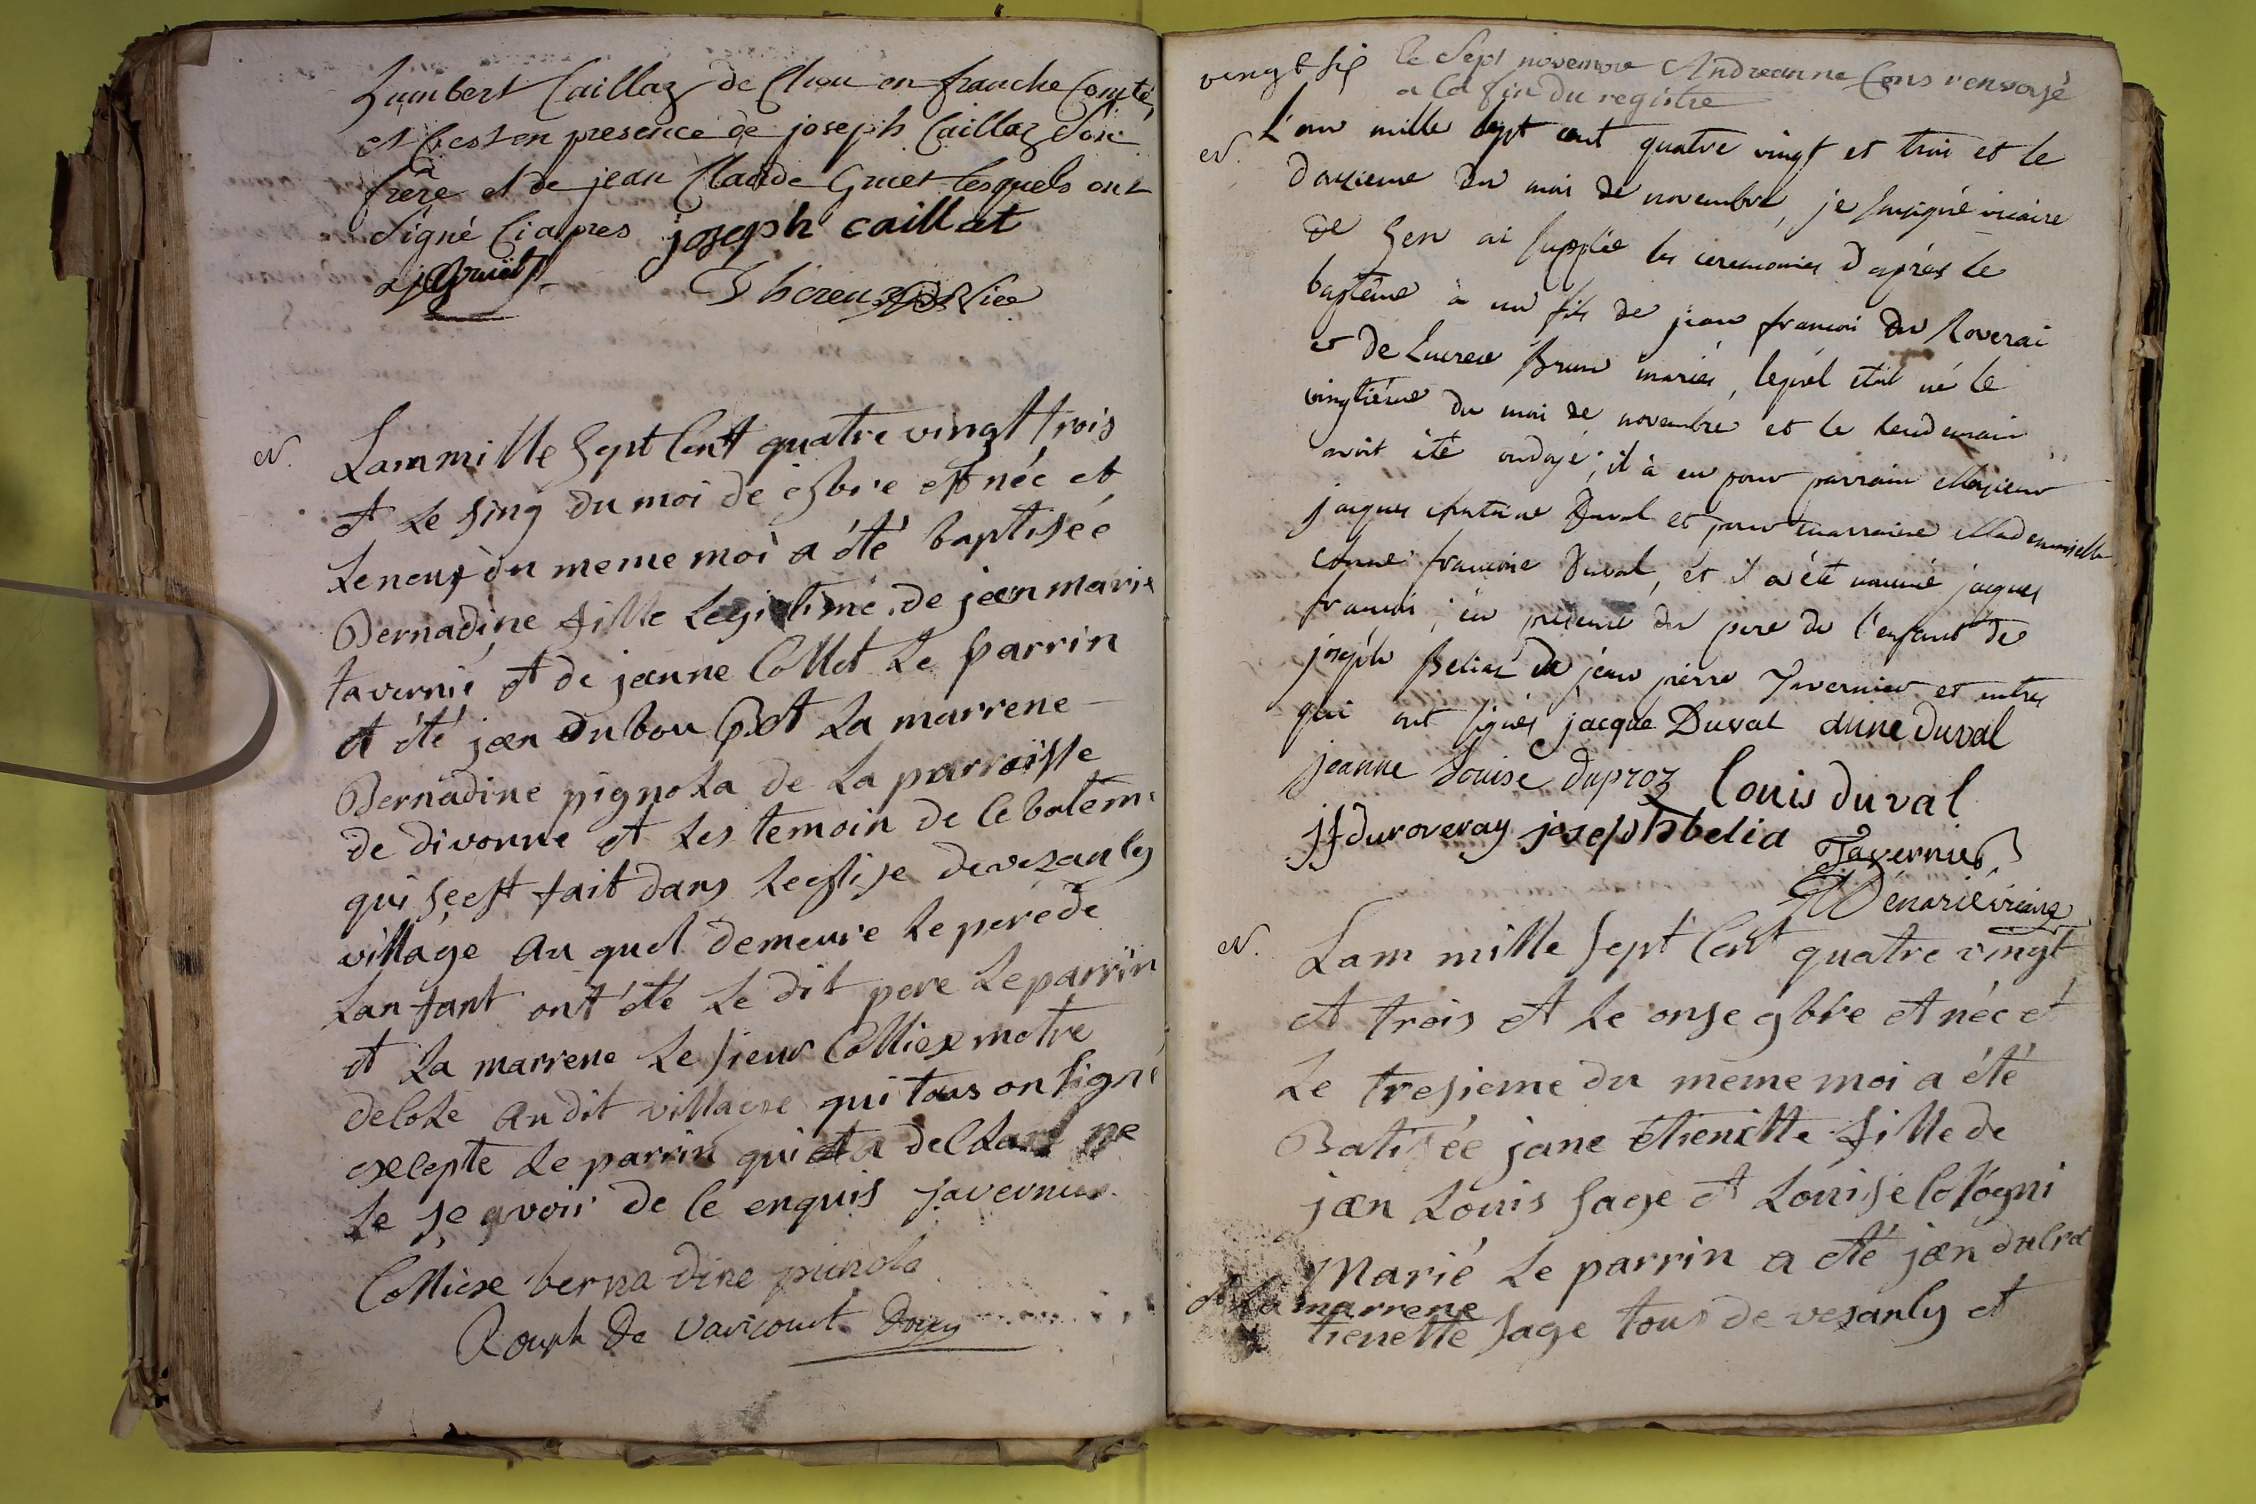 humbert Caillaz de Chou en franche Comté,
et C'est en presence de joseph Caillaz Son
frère et de jean Claude Gruet lesquels ont
Signé Ciapres joseph caillat
jC Gruët
Thorens Vice
N. Lam mille Sept Cent quatre vingt trois
et Le Sinq du moi de 9bre est née et
Le neuf du meme moi a été baptisée
Bernadine fille Legitime de jean marie
tavernié et de jeanne Collet Le parrin
et été jean dubou et La marrene
Bernadine pignola de La parroisse
de divonne et Les temoin de Ce batem
qui Seest fait dans Leeglise de vezanly
village au quel demeure Le pere de
Lanfant ont été Le dit pere Le parrin
et La marrene Le Sieur Colliex motre
decole audit village qui tous on Signé
excepte Le parrin qui et a declaré ne
Le Sçavoir de Ce enquis tavernier
Colliex bernadine pinola
Rouph de Varicourt Doyen
vingt six
le Sept novembre Andreanne Cons renvoyé
a la fin du registre
N. L'an mille sept cent quatre vingt et trois et le
douzieme du mois de novembre, je soussigné vicaire
de Gex ai supplée les ceremonies d'aprés le
baptême à un fils de jean françois du Roverai
et de Lucrece Brun mariés, lequel étoit né le
vingtiéme du mois de novembre et le lendemain
avoit été ondoyé; il à eu pour parrain Monsieur
jacques Antoine Duval et pour marraine Mademoiselle
Anne françoise Duval, et il a été nommé jacques
francois; en présence du pere de l'enfant de
joseph Beliaz de jean pierre Tavernier et autres
qui ont signés jacque Duval anne duval
jeanne Louise duproz Louis duval
jf duroveray joseph belia
Tavernier
Dénarié vicaire
N. Lam mille Sept Cent quatre vingt
et trois et Le onse 9bre et née et
Le tresieme du meme moi a été
Batisée jane étienette fille de
jean Louis Sage et Louise Cologni
Marié Le parrin a été jean dulrat
et La marrene
tienette Sage tous de vezanly et